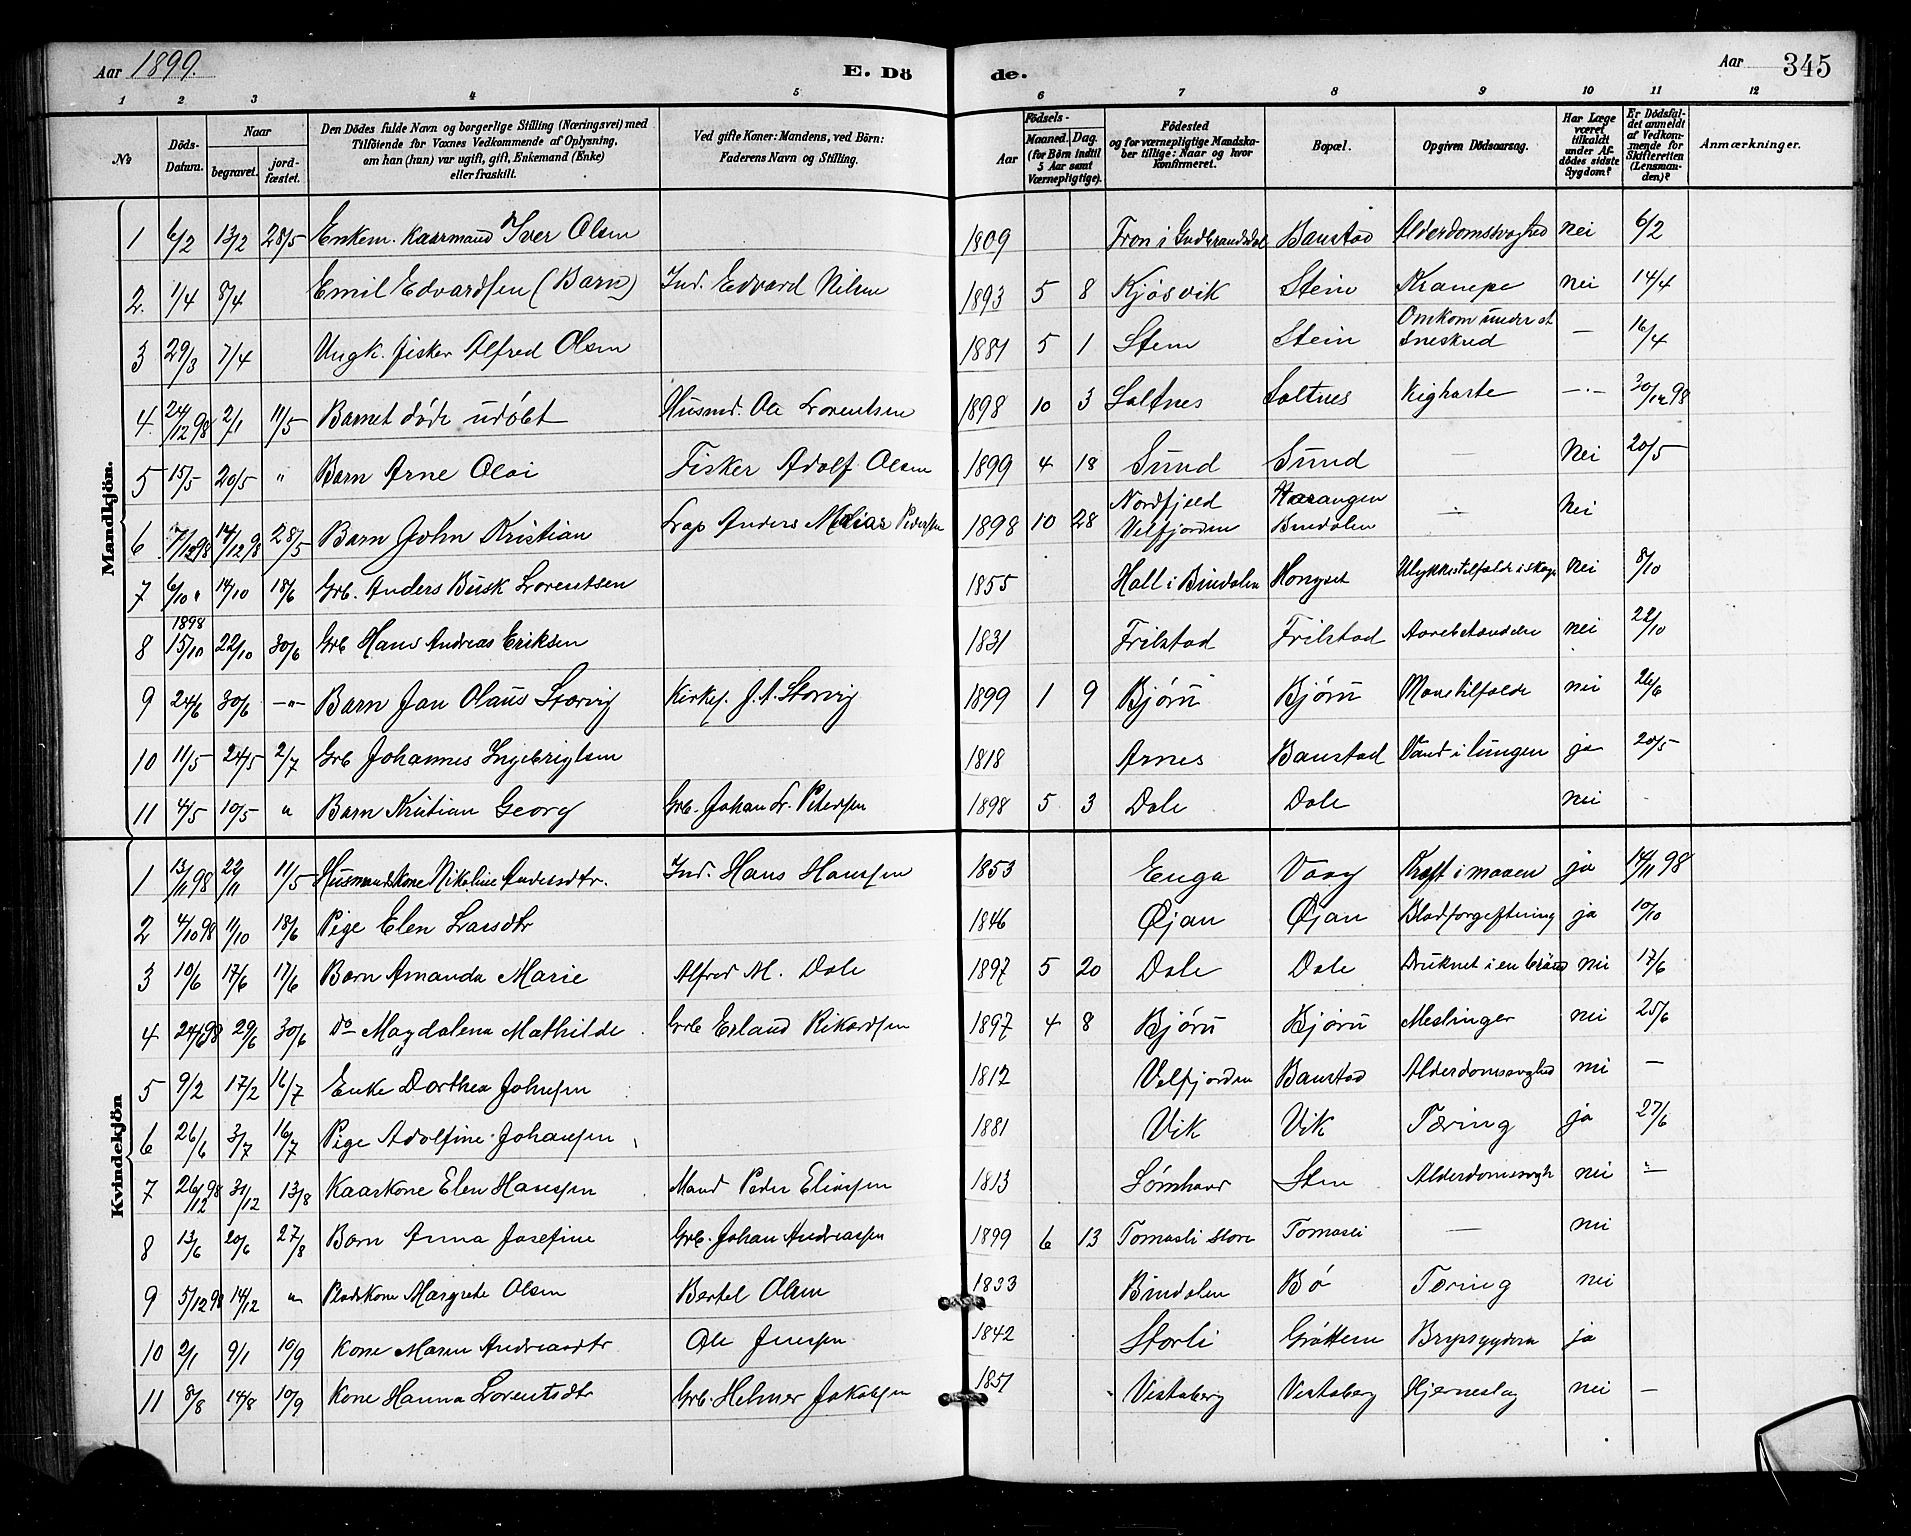 Aar 1899.
E. Dö
de.
Aar
345
1 2 3 4 5 6 7 8 9 10 11 12
No
Döds-Datum.
Naar
begravet.
jord-fæstet.
Den Dödes fulde Navn og borgerlige Stilling (Næringsvei) med
Tilföiende for Voxnes Vedkommende af Oplysning,
om han (hun) var ugift, gift, Enkemand (Enke)
eller fraskilt.
Ved gifte Koner: Mandens, ved Börn:
Faderens Navn og Stilling.
Födsels-
Aar
Maaned. Dag.
(for Börn indtil
5 Aar samt
Værnepligtige).
Födested
og for værnepligtige Mandska-
ber tillige: Naar og hvor
konfirmeret.
Bopæl.
Opgiven Dödsaarsag.
Har Læge
været
tilkaldt
under Af-
dödes sidste
Sygdom?
Er Dödsfal-
det anmeldt
af Vedkom-
mende for
Skifteretten
(Lensman-
den)?
Anmærkninger.
Mandkjön.
1 6/2 13/2 28/5 Enkem. Kaarmand Iver Olsen 1809 Fron i Gudbrandsdal Banstad Alderdomssvaghed nei 6/2
2. 1/4 8/4 Emil Edvardsen (Barn) Ind. Edvard Nilsen 1893 5 8 Kjøsvik Stein Krampe nei 14/4
3 29/3 7/4 Ungk. fisker Alfred Olsen 1881 5 1 Stein Stein Omkom under et Sneskred — 16/4
4. 24/12 98 2/1 11/5 Barnet døde udøbt Husmd. Ole Lorentsen 1898 10 3 Saltnes Saltnes Kighoste —·— 30/12 98
5 15/5 20/5 " Barn Arne Olai Fisker Adolf Olsen 1899 4 18 Sund Sund — Nei 20/5
6 7/12 98 14/12 98 28/5 Barn John Kristian Lap Anders Pedersen 1898 10 28 Nordfjeld Velfjorden Bindalen — Nei
7 6/10 " 14/10 18/6 Grb. Anders Busk Lorentsen 1855 Hall i Bindalen Hongset Ulykkestilfælde i skog nei 8/10
8 1898 15/10 22/10 30/6 Grb Hans Andreas Eriksen 1831 Frilstad Frilstad Aarebetændelse nei 22/10
9 24/6 30/6 —"— Barn Jon Olaus Storvig Kirkes. J. A. Storvig 1899 1 9 Bjørn Bjørn Mavetilfælde nei 26/6
10 11/5 24/5 2/7 Grb Johannes Ingebrigtsen 1818 Arnes Banstad Vand i lungen ja 20/5
11 4/5 10/5 " Barn Kristian Georg Grb. Johan Lr. Petersen 1898 5 3 Dale Dale nei -
Kvindekjön
1 13/11 98 22/11 11/5 Husmandskone Nikoline Andersdtr. Ind. Hans Hansen 1853 Enga Vaag Kræft i maven ja 14/11 98
2 4/10 98 11/10 18/6 Pige Elen Larsdtr 1846 Øjan Øjan Blodforgiftning ja 10/10
3 10/6 17/6 17/6 Barn Amanda Marie Alfred M. Dale 1897 5 20 Dale Dale Druknet i en brønd nei 17/6
4 24/6 98 29/6 30/6 Do Magdalena Mathilde Grb Erland Rikardsen 1897 4 8 Bjørn Bjørn Meslinger nei 25/6
5 9/2 17/2 16/7 Enke Dorthea Johnsen 1812 Velfjorden Banstad Alderdomssvaghed nei —
6 26/6 3/7 16/7 Pige Adolfine Johansen 1881 Vik Vik Tæring ja 27/6
7 26/12 98 31/12 13/8 Kaarkone Elen Hansen Mand Peder Eliassen 1813 Sten Alderdomssvagh nei "
8 13/6 20/6 27/8 Barn Anna Josefine Grb. Johan Andreassen 1899 6 13 Tomasli store Tomasli — nei
9 5/12 98 14/12 " Pladskone Margrete Olsen Bertel Olsen 1833 Bindalen Bø Tæring nei
10 2/1 9/1 10/9 Kone Maren Andreasdtr Ole Jensen 1842 Storli Grøttem Brystsygdom ja
11 8/8 14/8 10/9 Kone Hanna Lorentsdtr Grb. Helmer Jakobsen 1851 Vistaberg Vistaberg Hjerneslag nei —